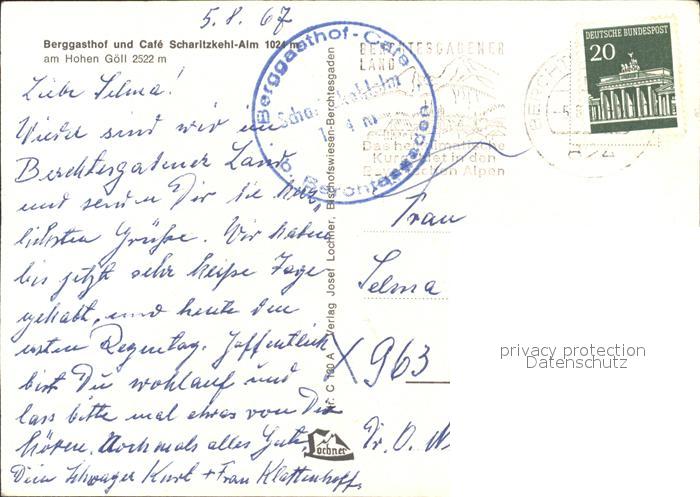 5.8.67
Berggasthof und Café Scharitzkehl-Alm 1024 m
am Hohen Göll 2522 m
Liebe Selma!
Wieder sind wir im
Berchtesgadener Land
und senden Dir die herz-
lichsten Grüße. Wir haben
bis jetzt sehr heiße Tage
gehabt, und heute den
ersten Regentag. Hoffentlich
bist Du wohlauf und
lass bitte mal etwas von Dir
hören. Nochmals alles Gute,
Dein Schwager Kurt + Frau Klattenhoff.
Nr. C 180 A Verlag Josef Lochner, Bischofswiesen-Berchtesgaden
Lochner
Berggasthof-Café
Scharitzkehl-Alm
Berchtesgaden
BERCHTESGADENER
LAND
Das heilklimatische
Kurgebiet in den
Bayerischen Alpen
DEUTSCHE BUNDESPOST
20
Frau
Selma
X 963
Dr. O. N
privacy protection
Datenschutz